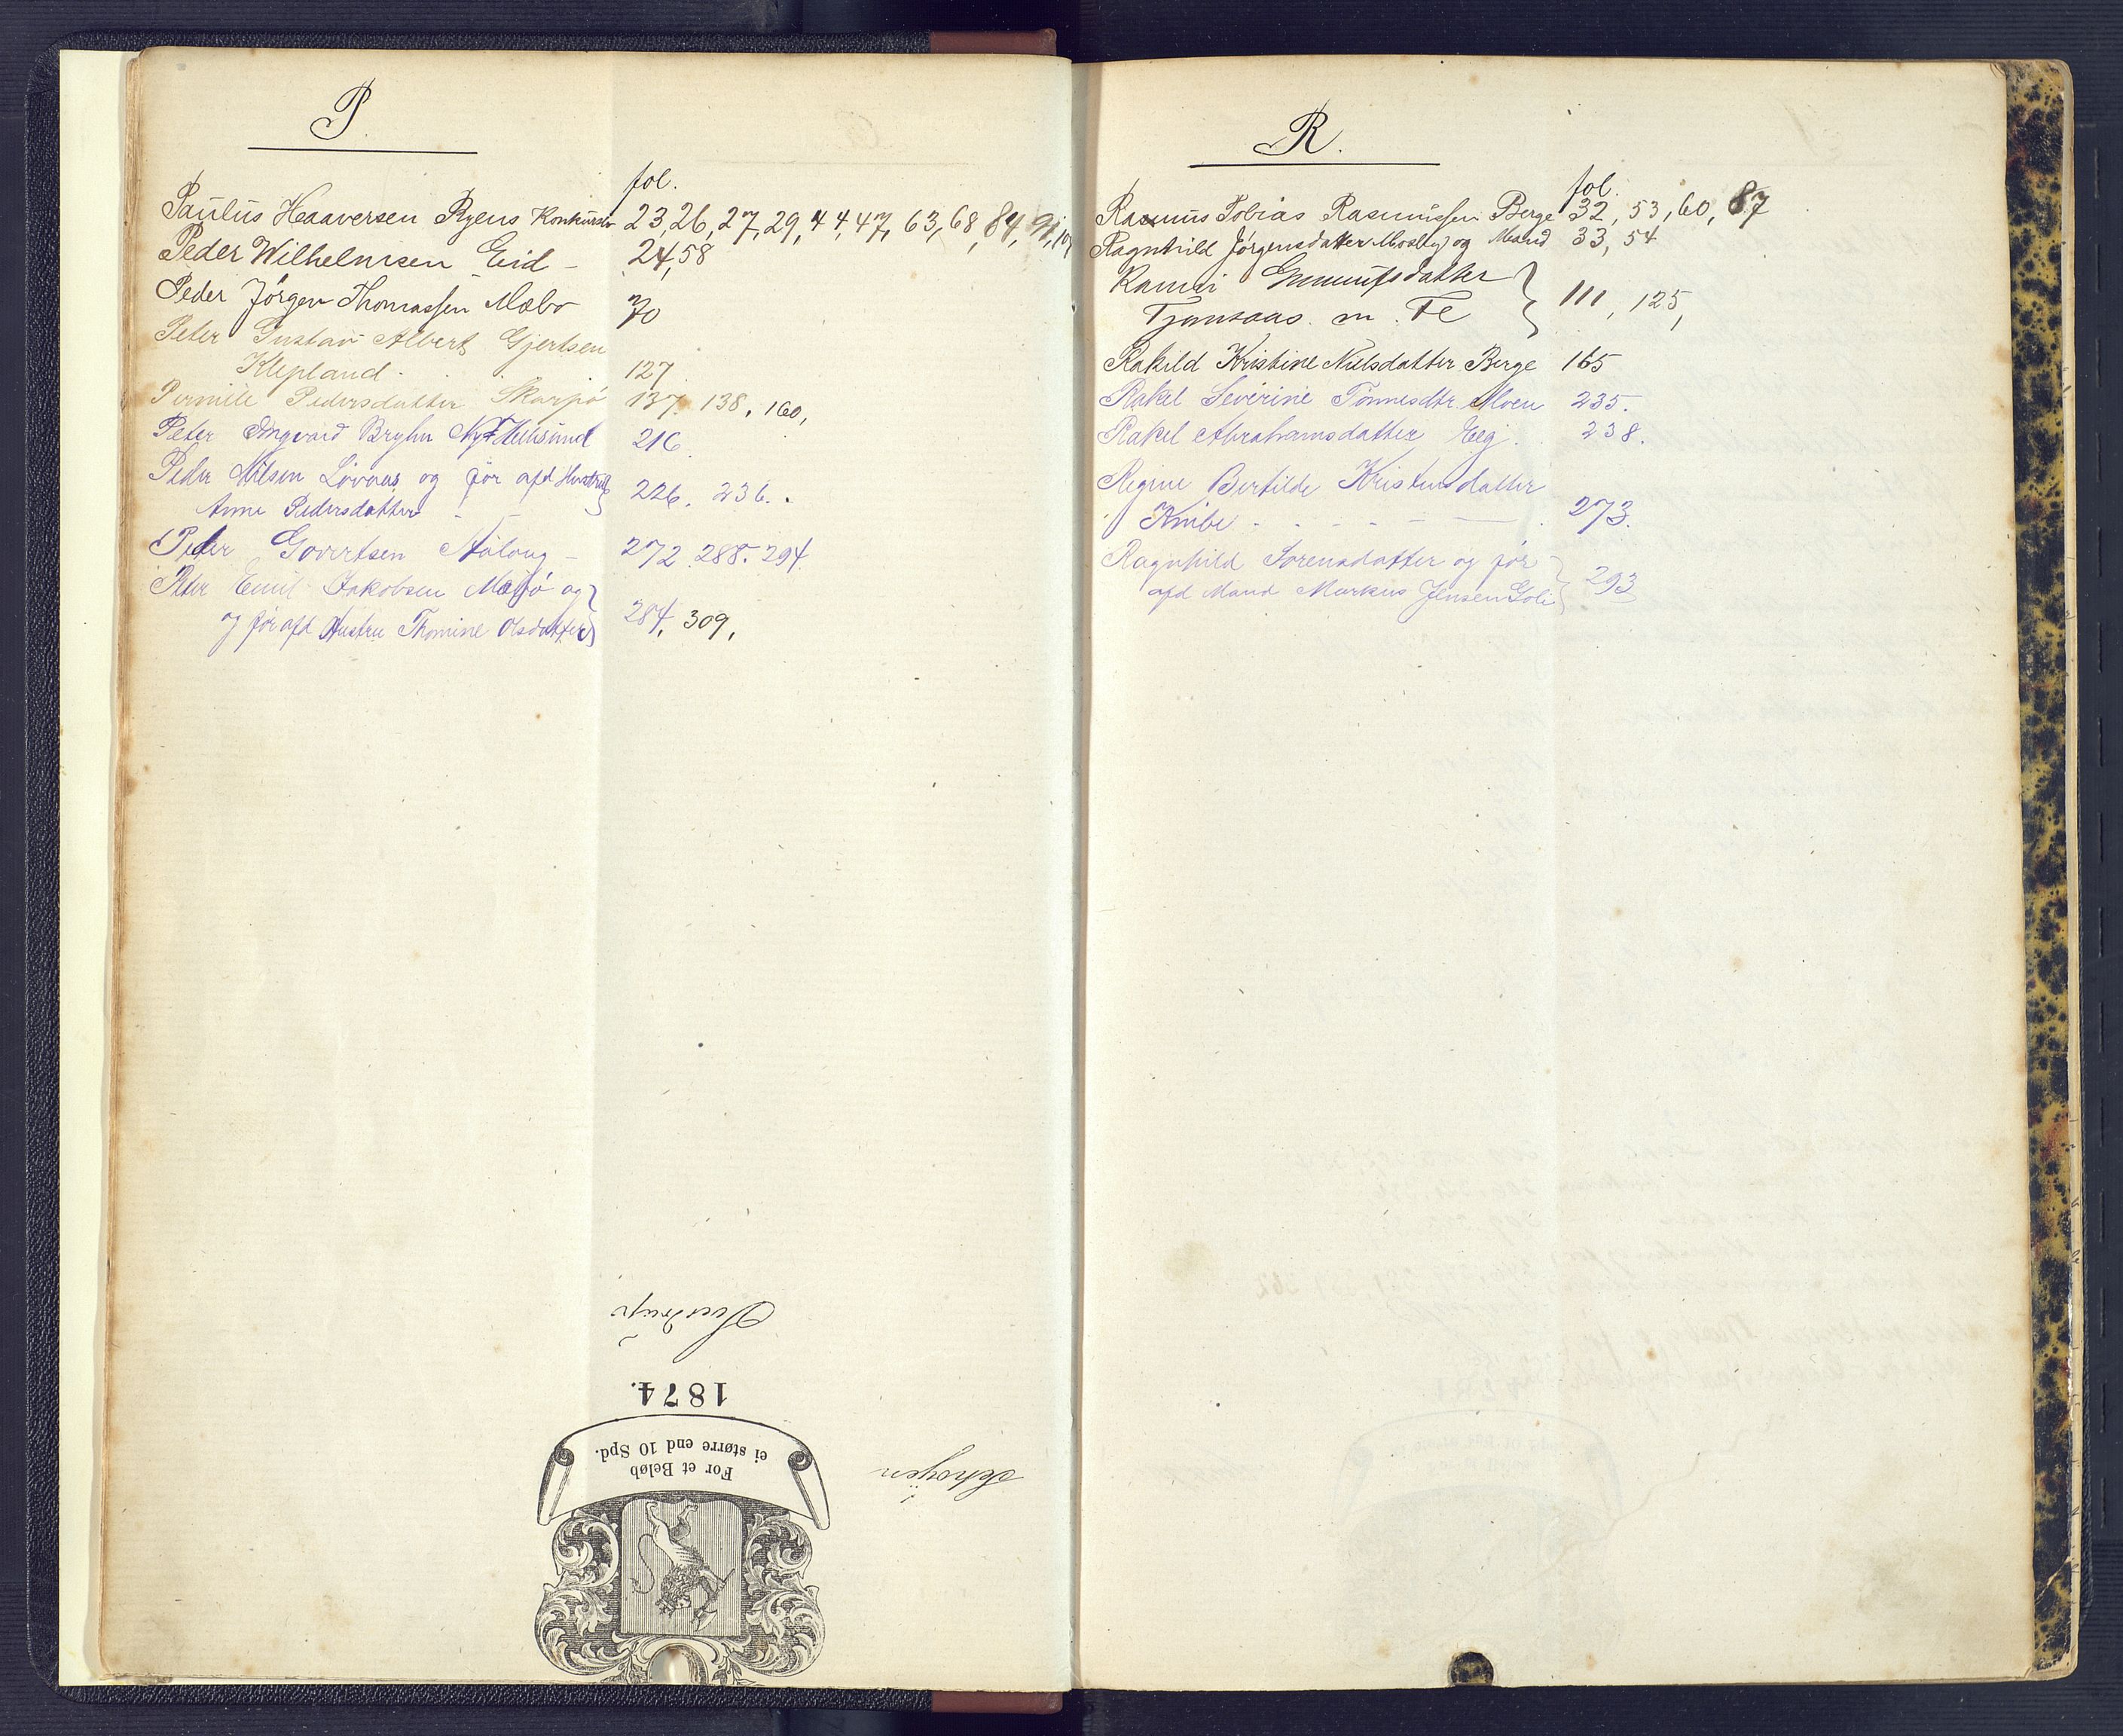 P.
fol.
Paulus Haaversen Ryens Konkursbo 23, 26, 27, 29, 44, 47, 63, 68, 84, 91, 107
Peder Wilhelmsen Eid – 24, 58
Peder Jörgen Thomassen Mæbø 70
Peter Gustav Albert Gjertsen
Klepland . . . 127
Pernille Pedersdatter Skarpö 137. 138, 160,
Peter Ingvard Bryhn Ny Hellesund 216.
Peder Nilsen Lövaas og för afd Hustru
Anne Pedersdatter – – 226. 236.
Peder Govertsen Aaloug – 272. 288. 294
Peter Emil Jakobsen og
og för afd Hustru Thomine Olsdatter 284, 309,
Sverdrup
1874.
ei større end 10 Spd.
For et Beløb
R.
fol.
Rasmus Tobias Rasmussen Berge 32, 53, 60, 87
Ragnhild Jörgensdatter Mosby og Mand 33, 54
Gunnufsdatter
m. Fl 111, 125,
Rakild Kristine Nielsdatter Berge 165
Rakel Severine Tönnesdtr. Moen 235.
Rakel Abrahamsdatter Eeg . . 238.
Regine Bertilde Kristensdatter
Knibe - - - - - . 273.
Ragnhild Sorensdatter og för
afd Mand Markus Jensen Goli 293